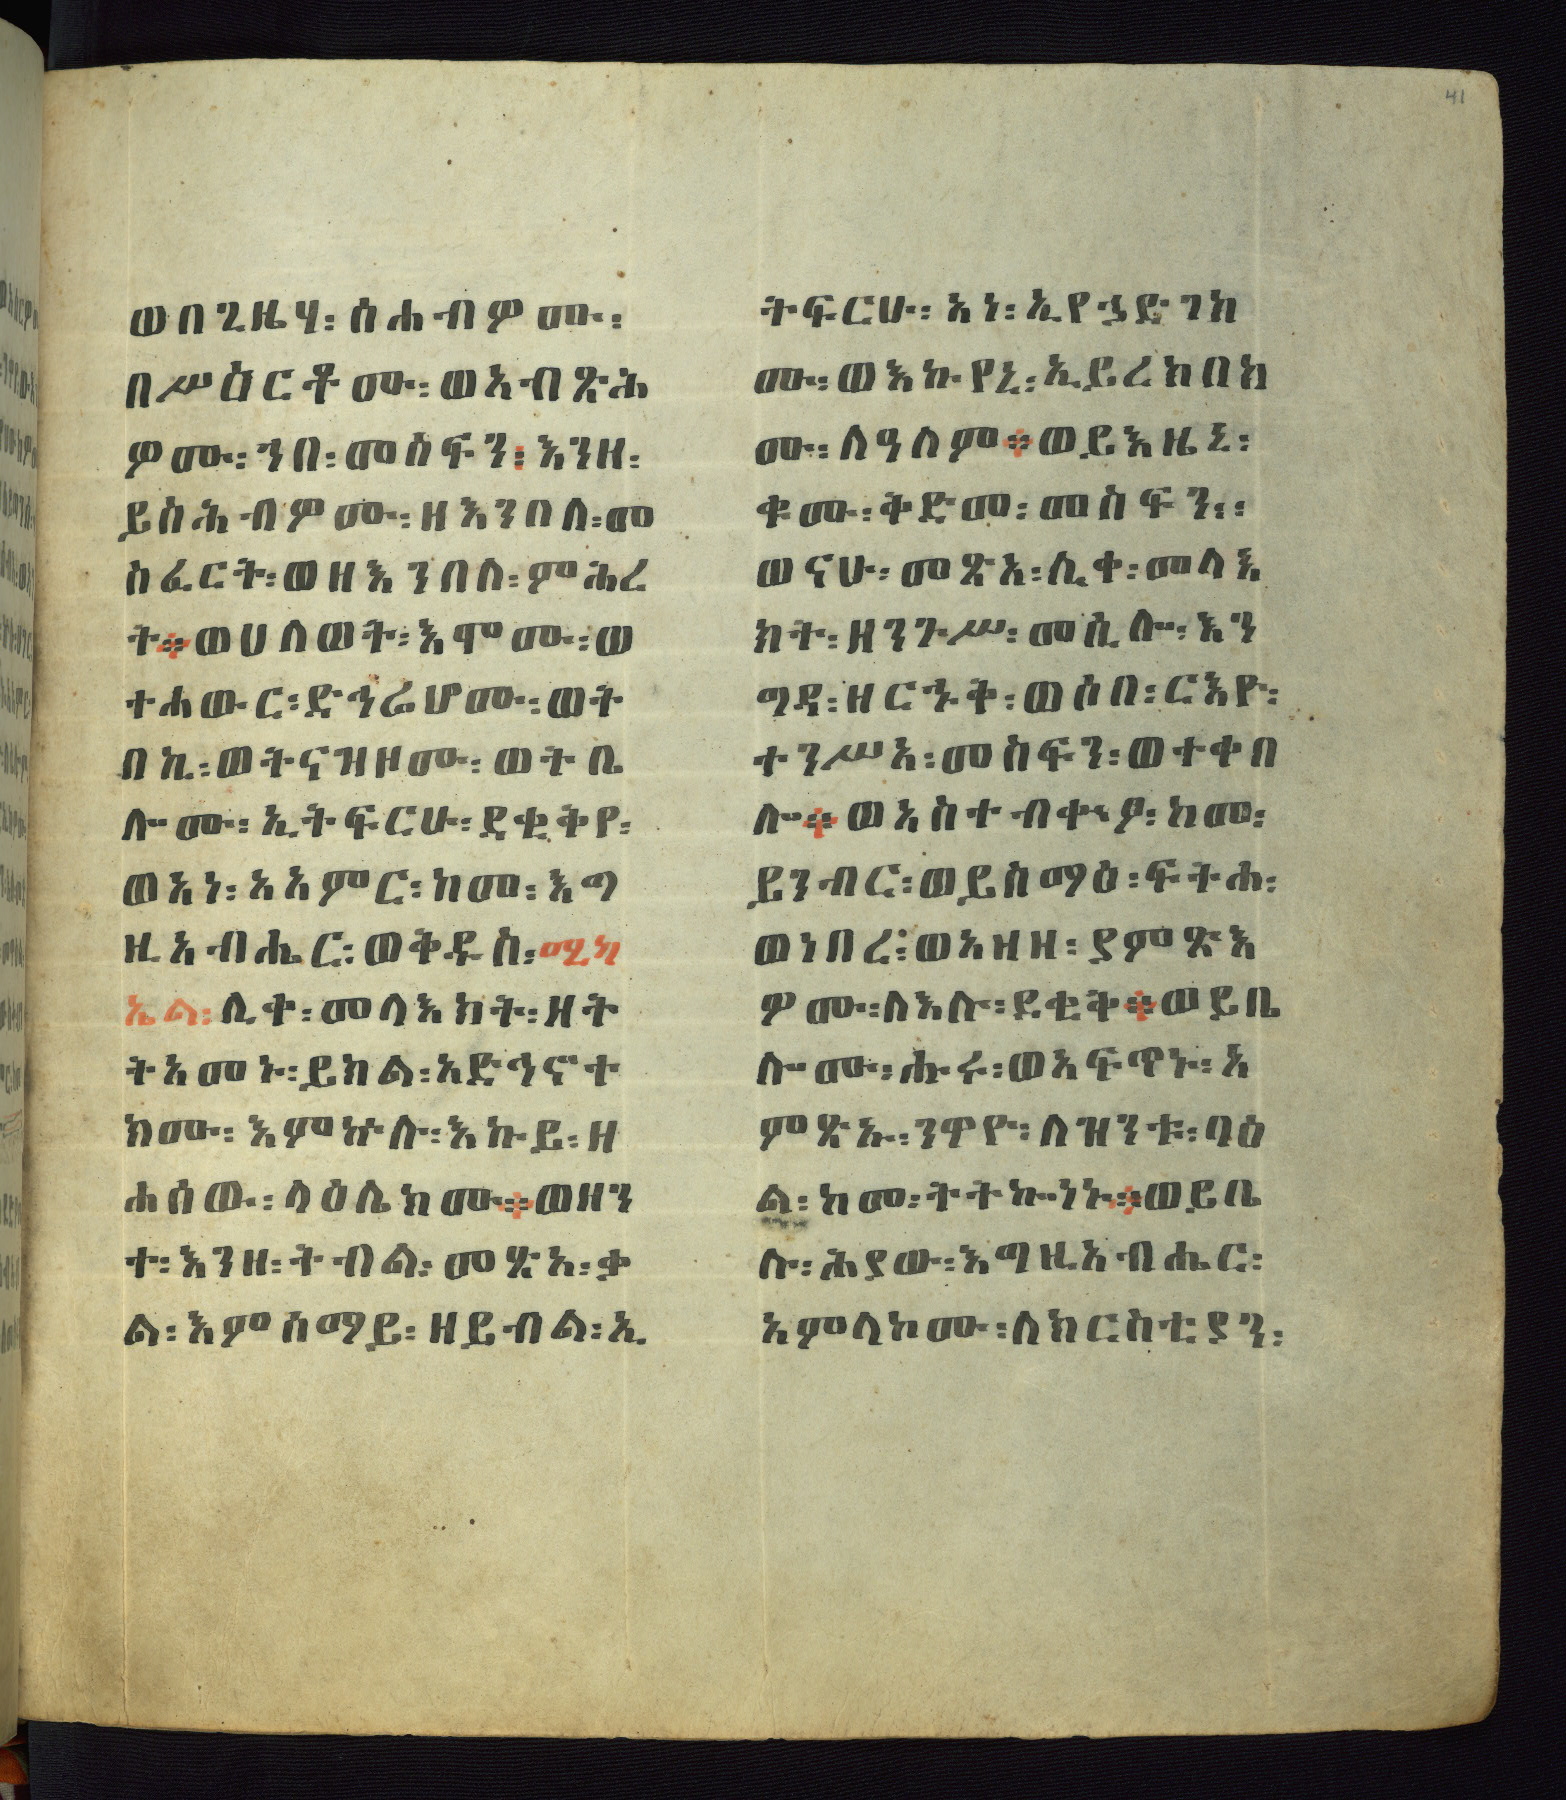 41
ወበጊዜሃ፡ ሰሐብዎሙ፡
በሥዕርቶሙ፡ ወአብጽሕ
ዎሙ፡ ኀበ፡ መስፍን፡ እንዘ፡
ይስሕብዎሙ፡ ዘእንበለ፡ መ
ስፈርት፡ ወዘእንበለ፡ ምሕረ
ት፨ ወሀለወት፡ እሞሙ፡ ወ
ተሐውር፡ ድኅሬሆሙ፡ ወት
በኪ፡ ወትናዝዞሙ፡ ወትቤ
ሎሙ፡ ኢትፍርሁ፡ ደቂቅየ፡
ወአነ፡ አአምር፡ ከመ፡ እግ
ዚአብሔር፡ ወቅዱስ፡ ሚካ
ኤል፡ ሊቀ፡ መላእክት፡ ዘት
ትአመኑ፡ ይክል፡ አድኅኖተ
ክሙ፡ እምኵሉ፡ እኩይ፡ ዘ
ሐሰው፡ ላዕሌክሙ፨ ወዘን
ተ፡ እንዘ፡ ትብል፡ መጽአ፡ ቃ
ል፡ እምሰማይ፡ ዘይብል፡ ኢ
ትፍርሁ፡ አነ፡ ኢየኃድገክ
ሙ፡ ወእኩየኒ፡ ኢይረክበክ
ሙ፡ ለዓለም፨ ወይእዜኒ፡
ቁሙ፡ ቅድመ፡ መስፍን፡፡
ወናሁ፡ መጽአ፡ ሊቀ፡ መላእ
ክት፡ ዘንጉሥ፡ መሲሎ፡ እን
ግዳ፡ ዘርኁቅ፡ ወሶበ፡ ርእዮ፡
ተንሥአ፡ መስፍን፡ ወተቀበ
ሎ፨ ወአስተብቀኁዖ፡ ከመ፡
ይንብር፡ ወይስማዕ፡ ፍትሐ፡
ወነበረ፡ ወአዘዘ፡ ያምጽእ
ዎሙ፡ ለእሉ፡ ደቂቅ፨ ወይቤ
ሎሙ፡ ሑሩ፡ ወአፍጥኑ፡ አ
ምጽኡ፡ ንዋዮ፡ ለዝንቱ፡ ባዕ
ል፡ ከመ፡ ትትኰነኑ፨ ወይቤ
ሉ፡ ሕያው፡ እግዚአብሔር፡
አምላኮሙ፡ ለክርስቲያን፡